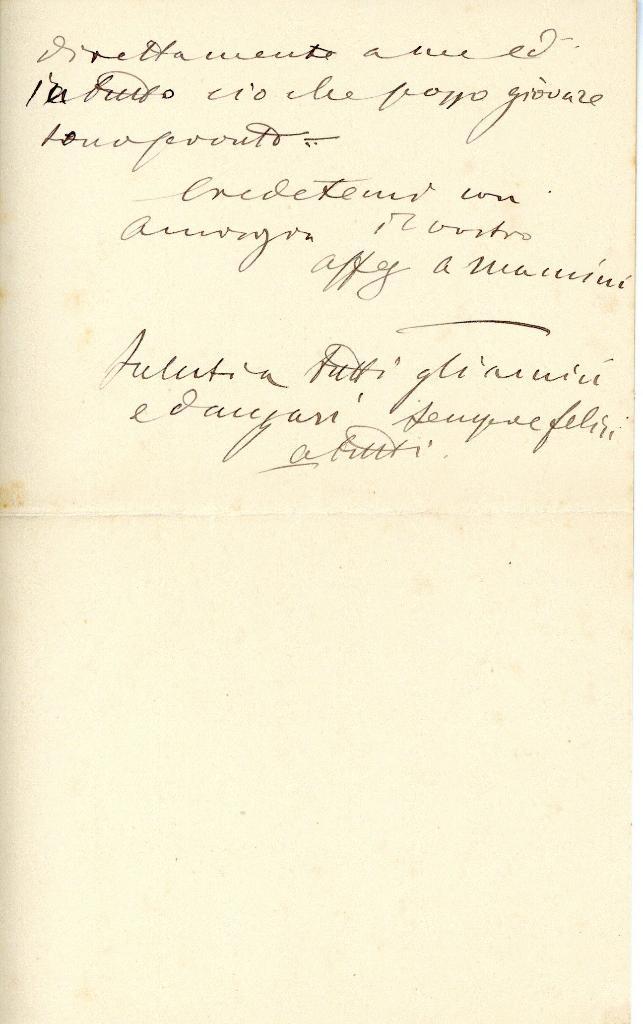 direttamente a me ed
in tutto ciò che posso giovare
sono pronto =
Credetemi con
il vostro
affez A Mancini
Saluti a tutti gli amici
ed auguri sempre felici
a tutti.